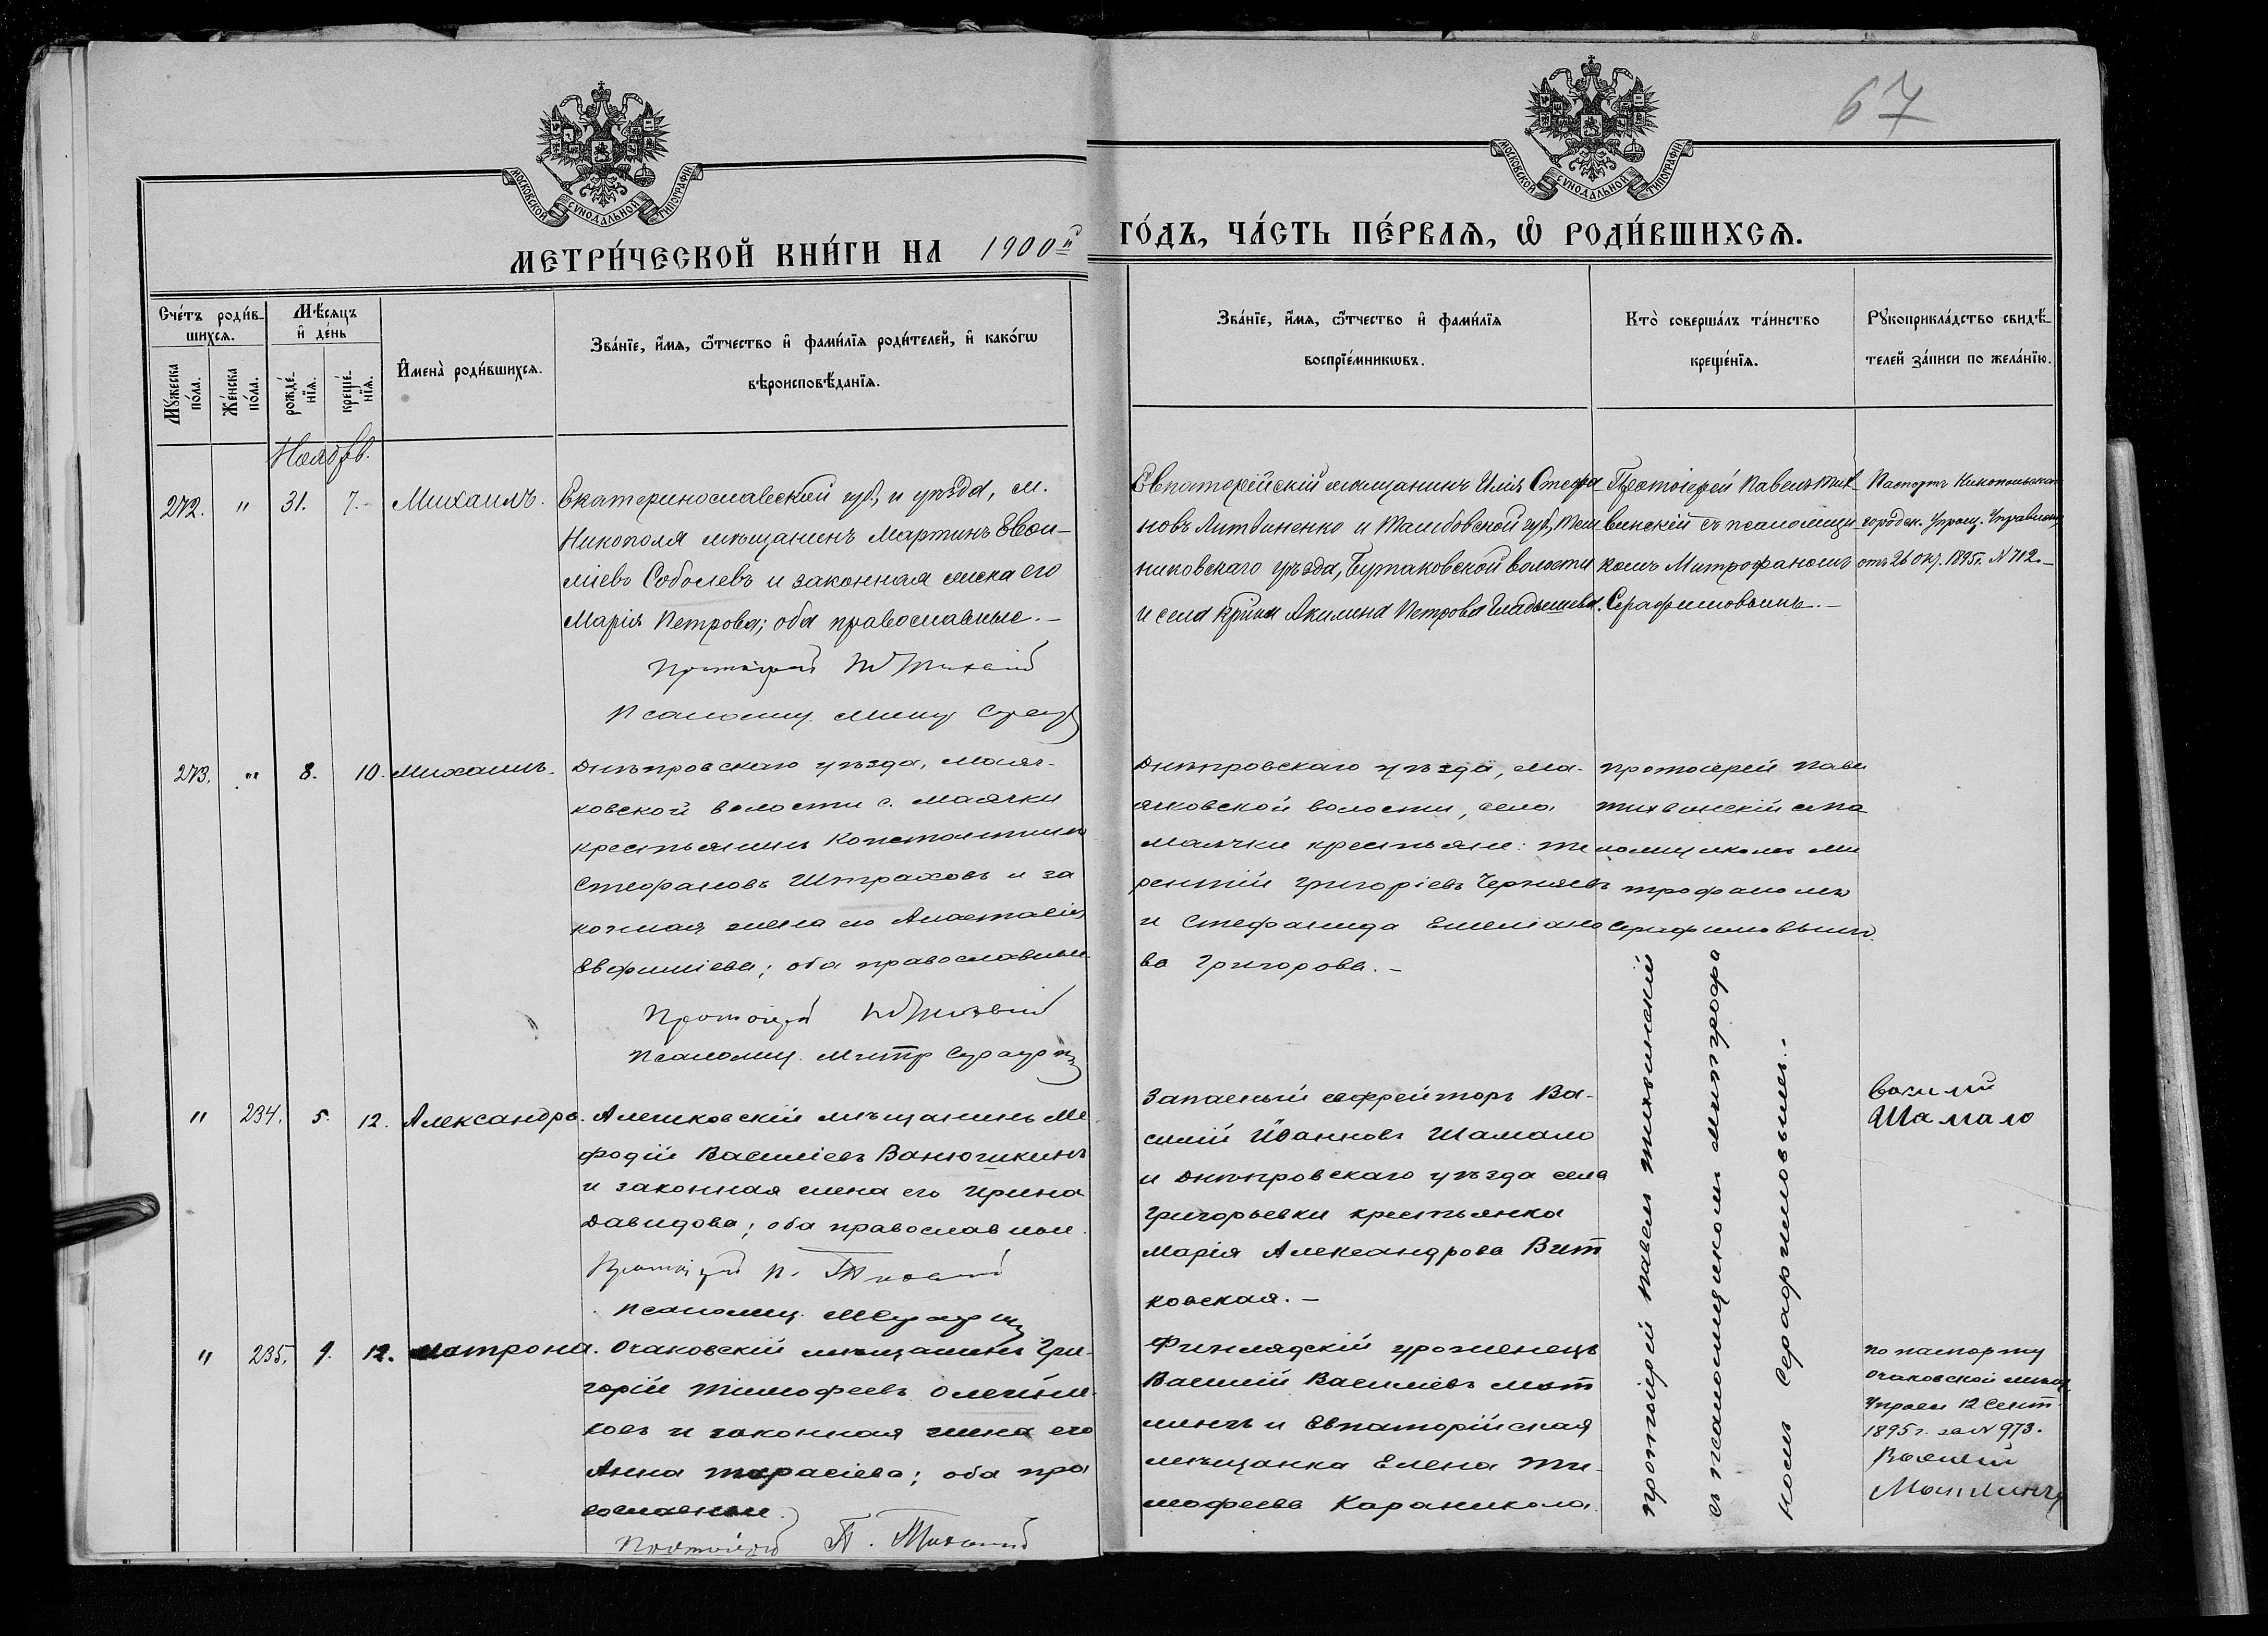 67
МОСКОВСКОЙ СѴНОДАЛЬНОЙ ТИПОГРАФІИ
МОСКОВСКОЙ СѴНОДАЛЬНОЙ ТИПОГРАФІИ
МЕТРИ́ЧЕСКОЙ КНИ́ГИ НА 1900й ГО́ДЪ, ЧА́СТЬ ПЕ́РВАѦ, Ѡ РОДИ́ВШИХСѦ.
Сче́тъ роди́в-
шихсѧ.
Мꙋ́жеска по́ла.
Же́нска по́ла.
Мѣ́сяцъ
и҆ де́нь
рожде́-нїѧ.
креще́-нїѧ.
И҆мена̀ роди́вшихсѧ.
Зва́нїе, и҆́мѧ, ѻ҆́тчество и҆ фами́лїѧ роди́телей, и҆ како́гѡ
вѣроисповѣ́данїѧ.
Зва́нїе, и҆́мѧ, ѻ҆́тчество и҆ фами́лїѧ
воспрїе́мникѡвъ.
Кто̀ соверша́лъ та́инство
креще́нїѧ.
Рꙋкоприкла́дство свидѣ́-
телей за́писи по жела́нїю.
Ноябрь.
272. " 31. 7. Михаилъ.
Екатеринославской губ., и уѣзда, м.
Никополя мѣщанинъ Мартинъ Евсе-
міевъ Соболевъ и законная жена его
Марія Петрова; оба православные. –
Протоіерей П Тихвинскій
Псаломщ. Митр Сераф
Евпаторійскій мѣщанинъ Илія Стефа-
новъ Литвиненко и Тамбовской губ., Тем
никовскаго уѣзда, Бутаковской волости
и села Акилина Петрова Гладышева.
Протоіерей Павелъ Тих-
винскій съ псаломщи
комъ Митрофаномъ
Серафимовымъ. –
Паспортъ Никопольской
городск. Управ.
отъ 26 Окт. 1895г. N 712. –
273. " 8. 10. Михаилъ.
Днѣпровскаго уѣзда, Маяч-
ковской волости с. Маячки
крестьянинъ Константинъ
Стефановъ Штраховъ и за
конная жена его Анастасія
Евфиміева; оба православные.
Протоіерей П Тихвинскій
Псаломщ. Митр Сераф
Днѣпровскаго уѣзда, Ма-
ячковской волости, села
Маячки крестьяне: Те
рентій Григоріевъ Черняевъ
и Стефанида Емеліано
ва Григорова. –
протоіерей Паве
Тихвинскій с пса
ломщикомъ Ми
трофаномъ
Серафимовымъ.
" 234. 5. 12. Александра.
Алешковскій мѣщанинъ Ме
фодій Василіевъ Ванюшкинъ
и законная жена его Ирина
Давидова; оба православные.
Протоіерей П. Тихвинскій
Псаломщ. М Сераф
Запасный ефрейторъ Ва-
силій Іоанновъ Шамало
и Днѣпровскаго уѣзда села
Григорьевки крестьянка
Марія Александрова Вит
ковская. –
протоіерей Павелъ Тихвинскій
съ псаломщикомъ Митрофа
номъ Серафимовымъ.
Василий
Шамало
" 235. 9. 12. Матрона.
Очаковскій мѣщанинъ Гри-
горій Тимофеевъ Олейни-
ковъ и законная жена его
Анна Тарасіева; оба пра
вославные.
Протоіерей П. Тихвинскій
Финлядскій уроженецъ
Василій Василіевъ Мат
линъ и Евпаторійская
мѣщанка Елена Ти-
мофеева Караникола.
по паспорту
Очаковской мѣщ.
Управы 12 Сент.
1895г. за N 973.
Василій